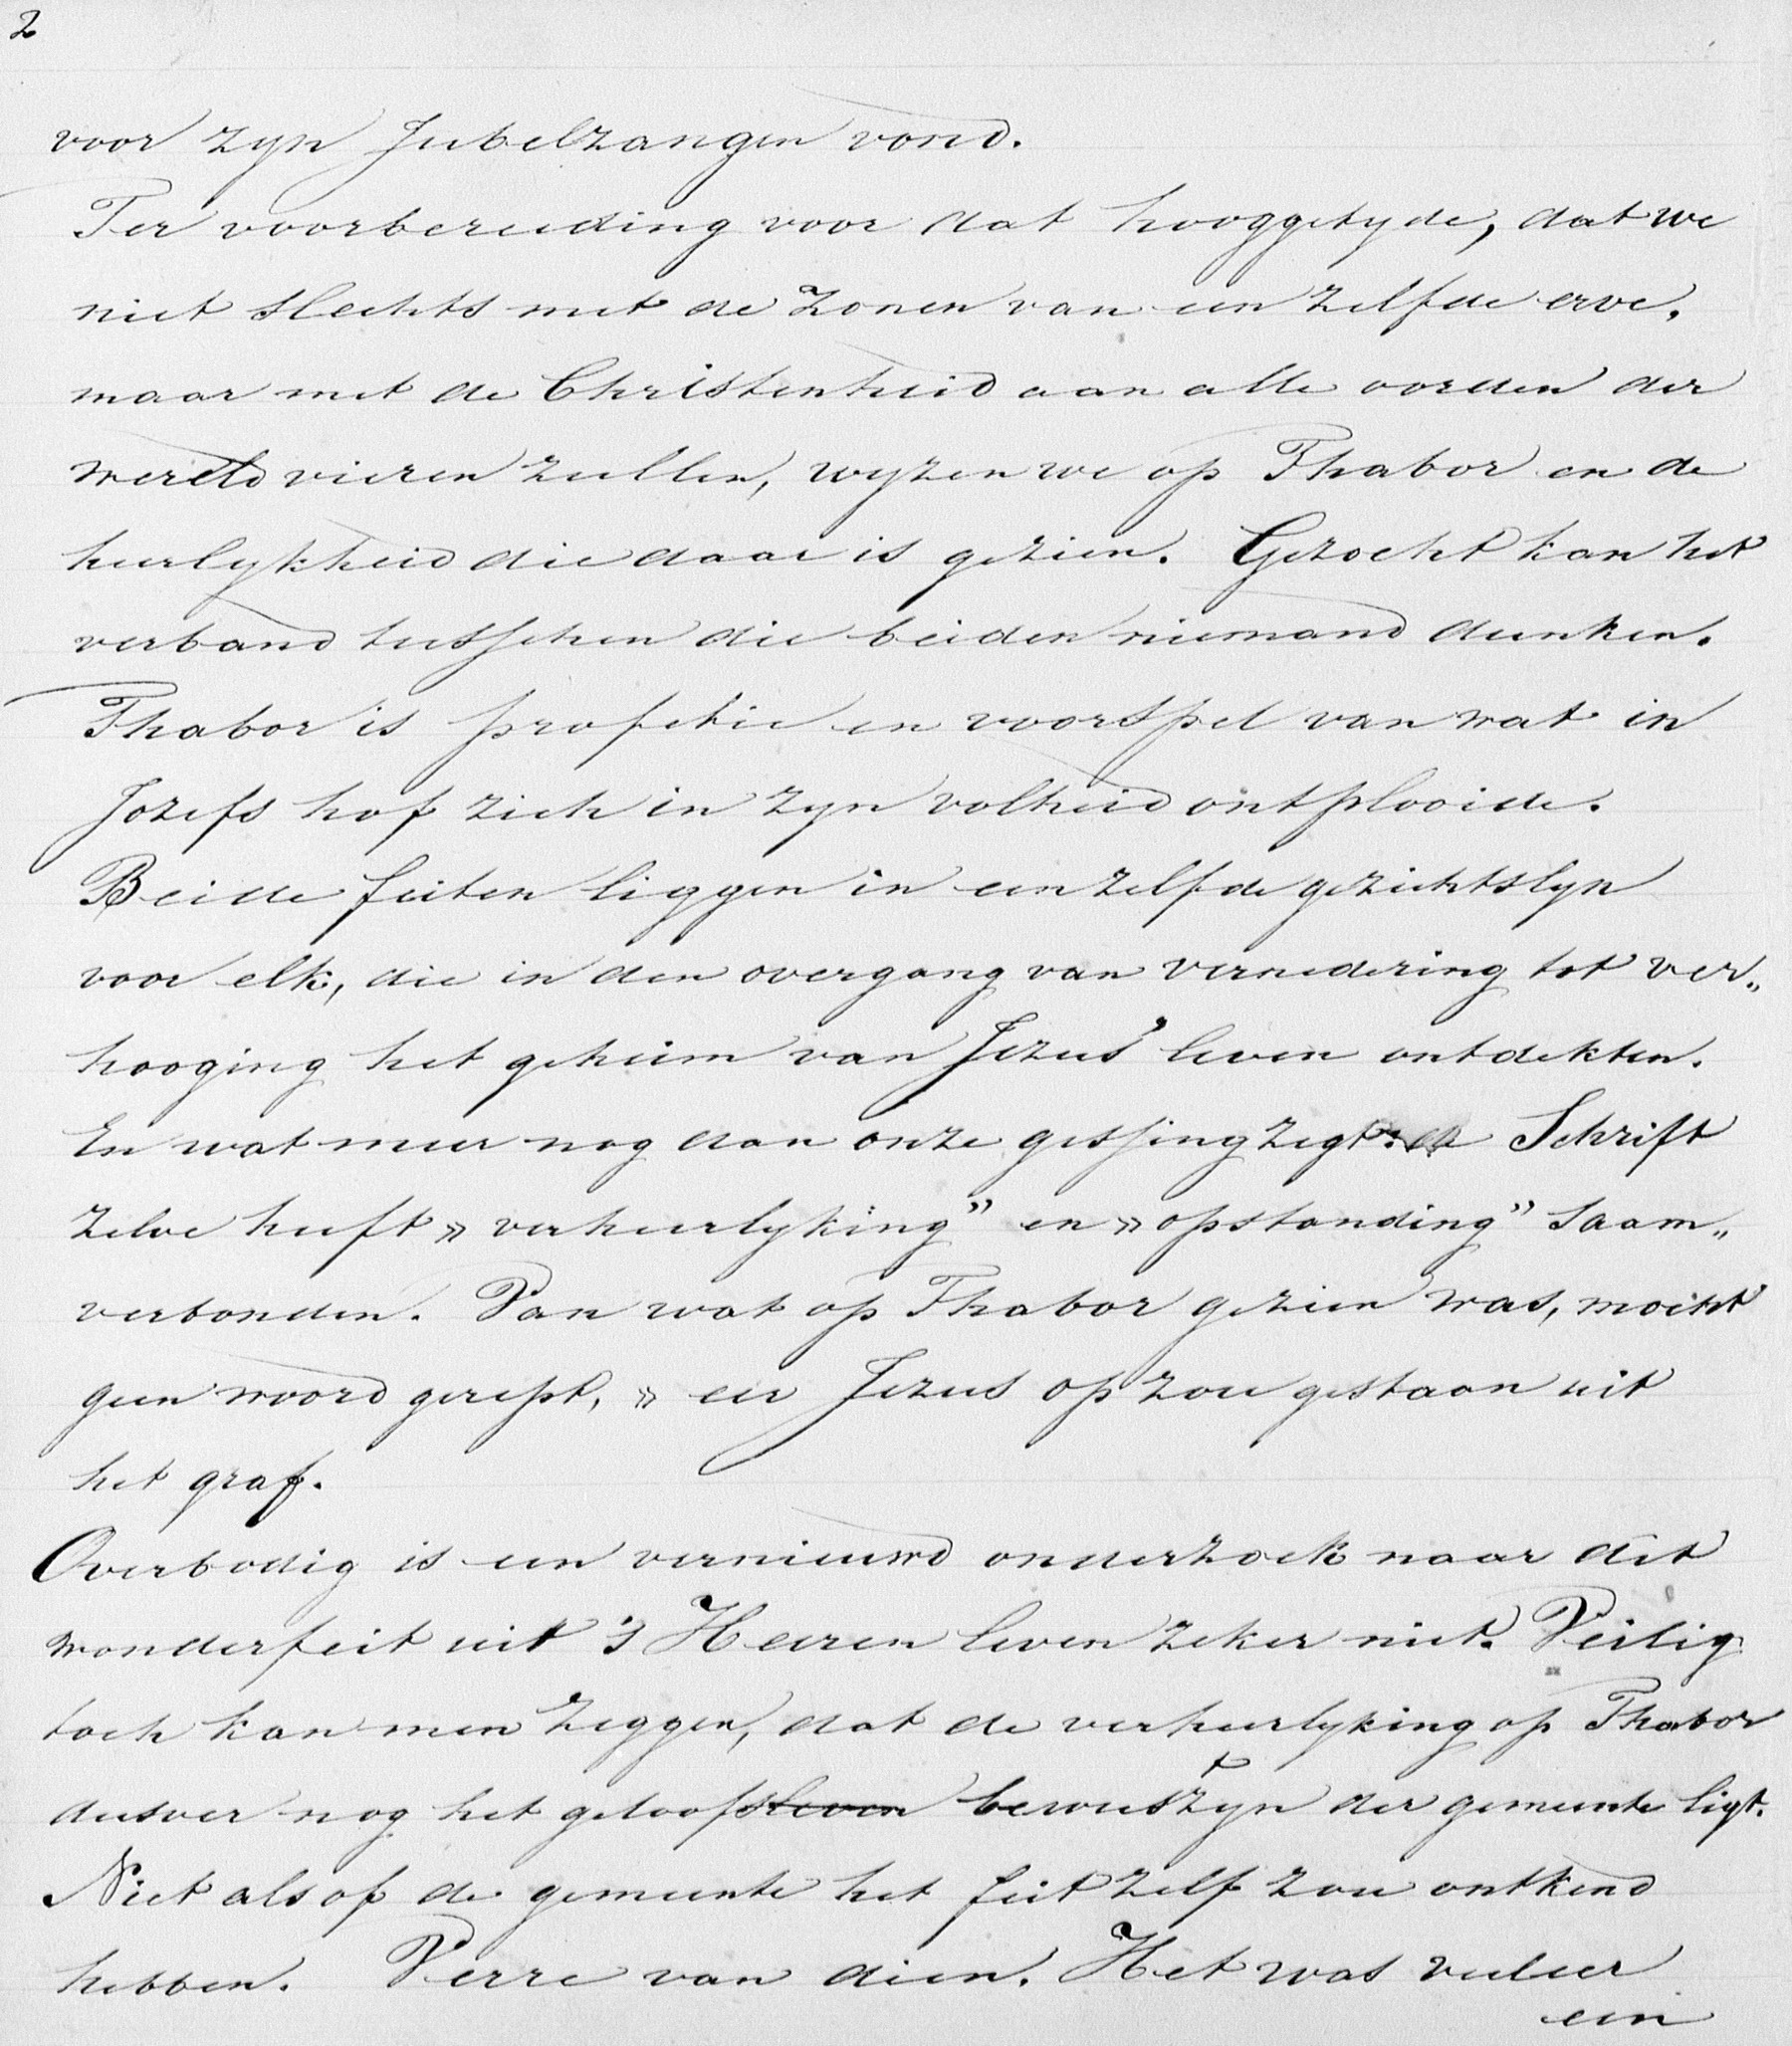 2
voor zyn Jubelzangen vond.
Ter voorbereiding voor dat hooggetyde, dat we
niet slechts met de zonen van een zelfde erve,
maar met de Christenheid aan alle oorden der
wereld vieren zullen, wyzen we op Thabor en de
heerlykheid die daar is gezien. Gezocht kan het
verband tusschen die beiden niemand dunken.
Thabor is profetie en voorspel van wat in
Jozefs hof zich in zyn volheid ontplooide.
Beide feiten liggen in een zelfde gezichtslyn
voor elk, die in den overgang van vernedering tot ver„
hooging het geheim van Jezus' leven ontdekten.
En wat meer nog dan onze gissing zegt: de Schrift
zelve heeft » verheerlyking” en » opstanding” saam„
verbonden. Van wat op Thabor gezien was, mocht
geen woord gerept, » eer Jezus op zou gestaan uit
het graf.
Overbodig is een vernieuwd onderzoek naar dit
wonderfeit uit 's Heeren leven zeker niet. Veilig
toch kan men zeggen, dat de verheerlyking op Thabor
dusver nog het geloofsleven bewustzyn der gemeente ligt.
Niet alsof de gemeente het feit zelf zou ontkend
hebben. Verre van dien. Het was veeleer
een